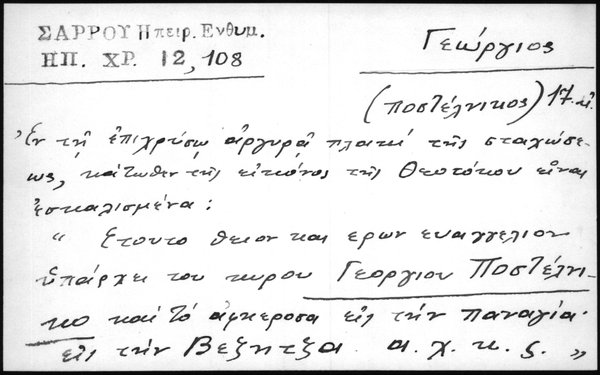 ΣΑΡΡΟΥ Ηπειρ. Ενθυμ.
ΗΠ. ΧΡ. 12, 108
Γεώργιος
(ποστέλνικος) 17. αἰ.
"Ἐν τῇ ἐπιχρύσῳ ἀργυρᾷ πλακὶ τῆς σταχώσε-
ως, κάτωθεν τῆς εἰκόνος τῆς Θεοτόκου εἶναι
ἐσκαλισμένα:
" Ετουτο θειον και ερων ευαγγελιον
ὑπάρχει του κυρου Γεοργιου Ποστέλνι-
κο καὶ τὸ αφκεροσα εἰς τὴν παναγία
εἰς τὴν Βεζητζα. α. χ. κ. ς. "